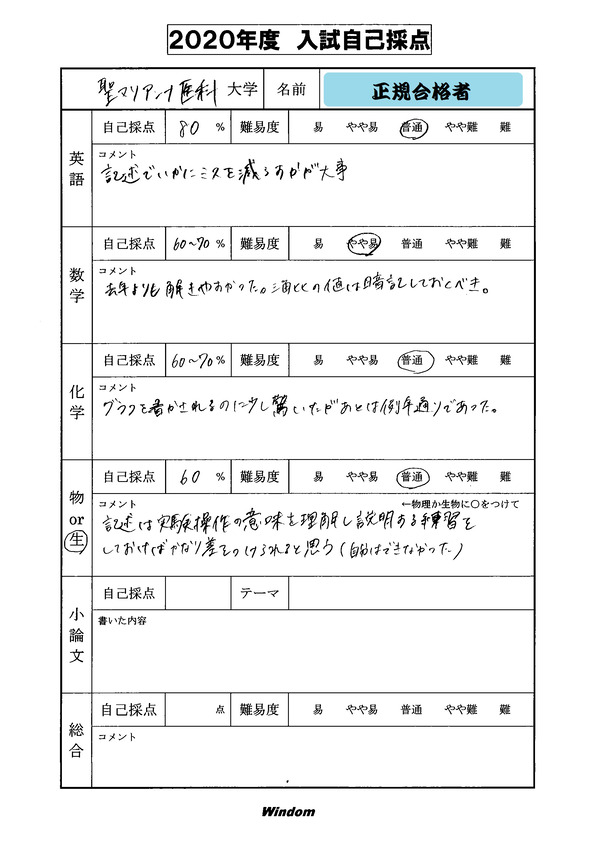 2020年度 入試自己採点
聖マリアンナ医科 大学 名前 正規合格者
英語
自己採点 80 % 難易度 易 やや易 普通 やや難 難
コメント
記述でいかにミスを減らすかが大事
数学
自己採点 60~70 % 難易度 易 やや易 普通 やや難 難
コメント
去年よりも解きやすかった。三角比の値は暗記しておくべき。
化学
自己採点 60~70 % 難易度 易 やや易 普通 やや難 難
コメント
グラフを書かされるのに少し驚いたがあとは例年通りであった。
物or生
自己採点 60 % 難易度 易 やや易 普通 やや難 難
コメント ←物理か生物に〇をつけて
記述は実験操作の意味を理解し説明する練習を
しておけばかなり差をつけられると思う(自分はできなかった)
小論文
自己採点 テーマ
書いた内容
総合
自己採点 点 難易度 易 やや易 普通 やや難 難
コメント
Windom